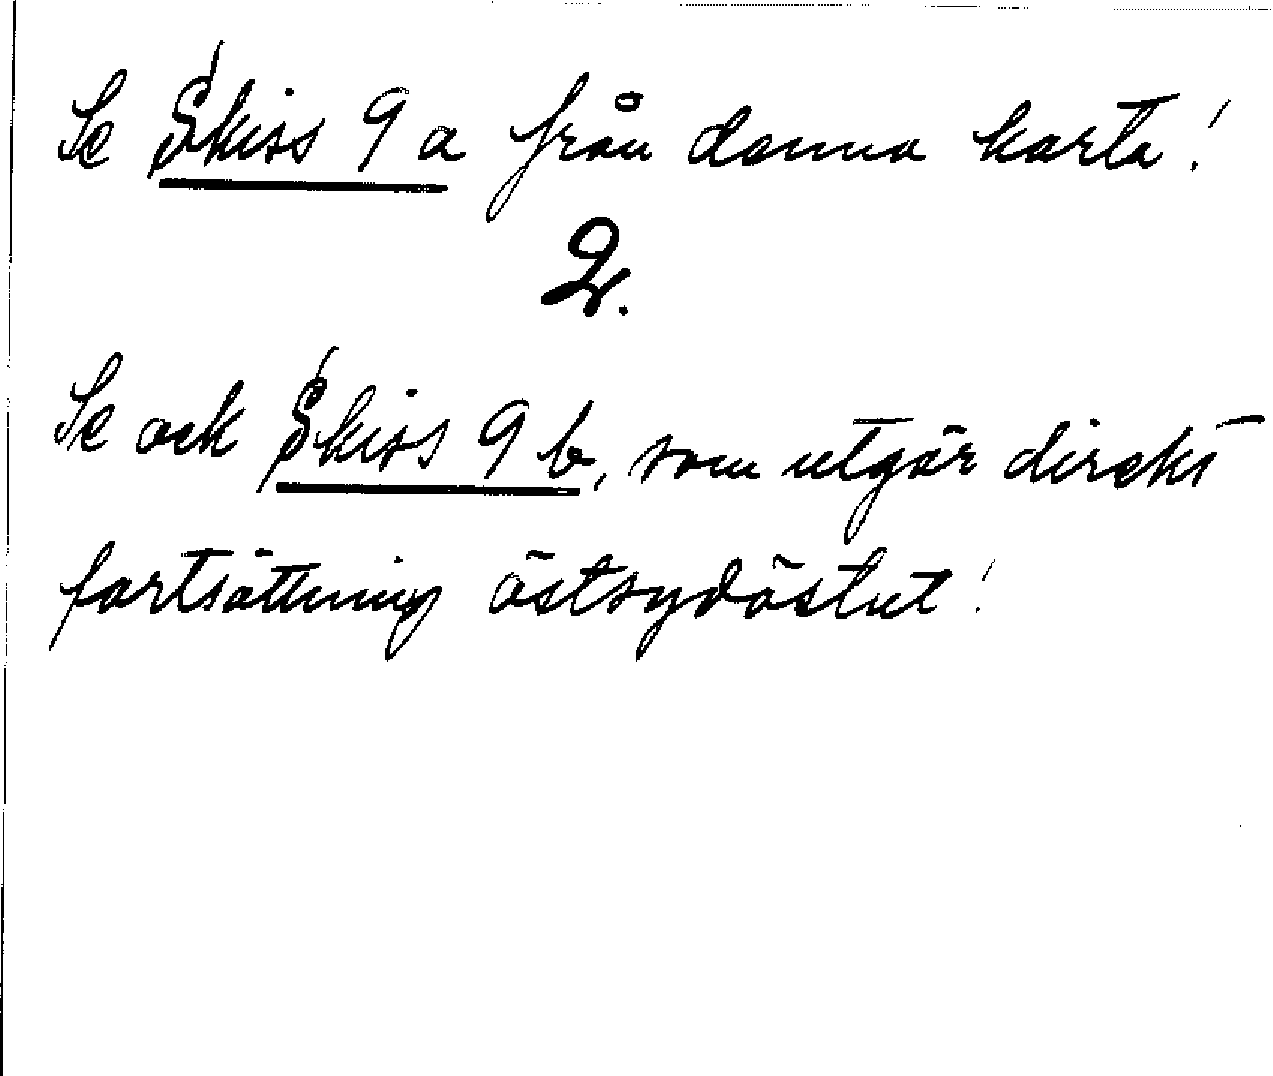 Se Skiss 9 a från denna karta!
2.
Se ock Skiss 9 b, som utgör direkt
fortsättning östsydöstut!